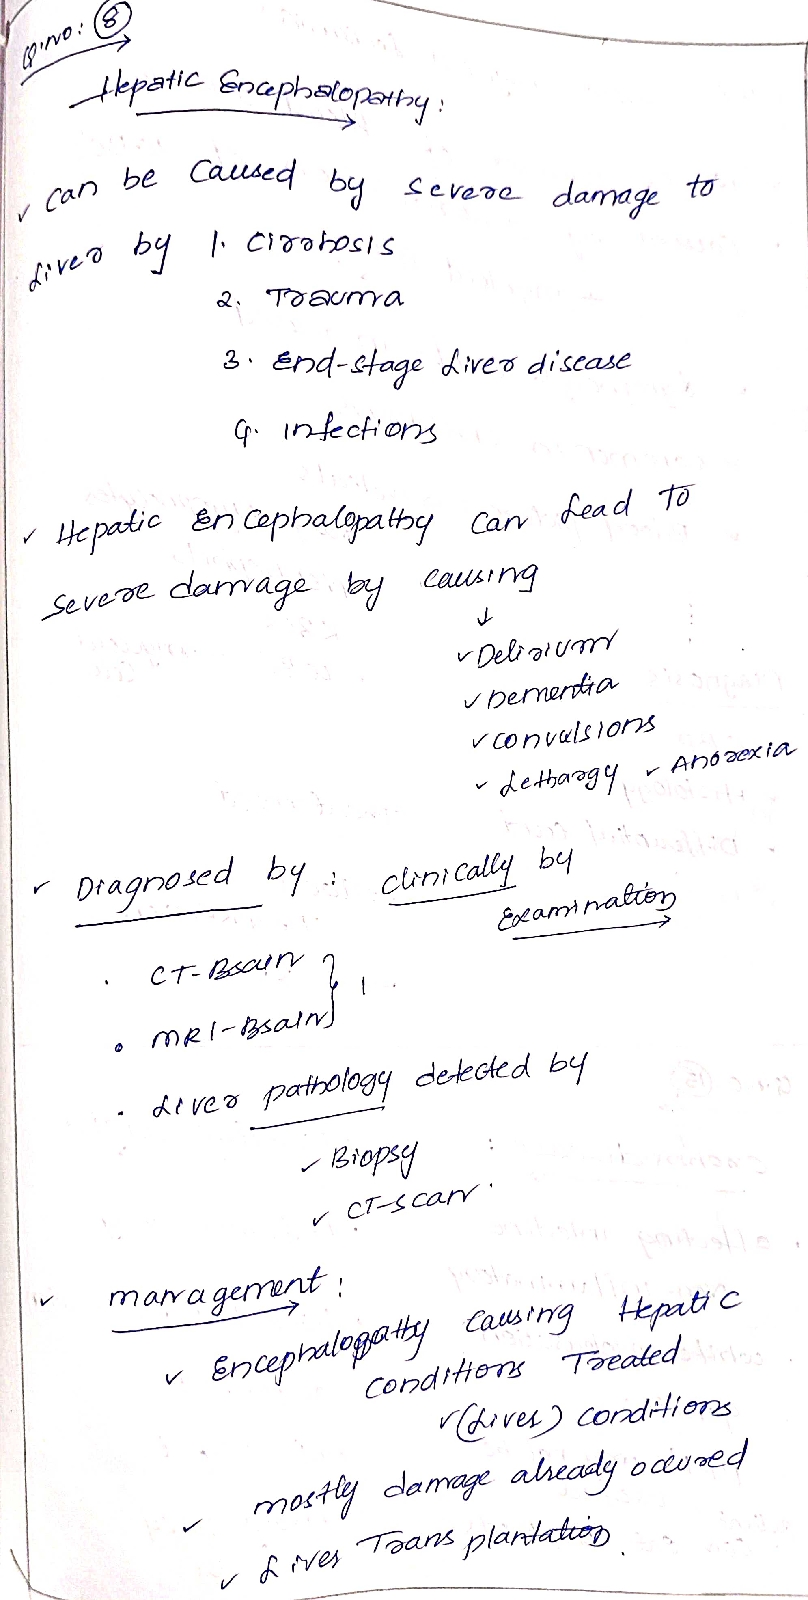 Q.no: 8
Hepatic Encephalopathy:
✓ can be caused by severe damage to
Liver by 1. cirrhosis
2. Trauma
3. End-stage Liver disease
4. infections
✓ Hepatic Encephalopathy can Lead to
severe damage by causing
↓
✓ Delirium
✓ Dementia
✓ convulsions
✓ Lethargy ✓ Anorexia
✓ Diagnosed by : clinically by
Examination
• CT-Brain } 1.
• MRI-Brain
• Liver pathology detected by
✓ Biopsy
✓ CT-scan.
✓ management:
✓ Encephalopathy causing Hepatic
conditions Treated
✓ (Liver) conditions
✓ mostly damage already occured
✓ Liver Transplantation.